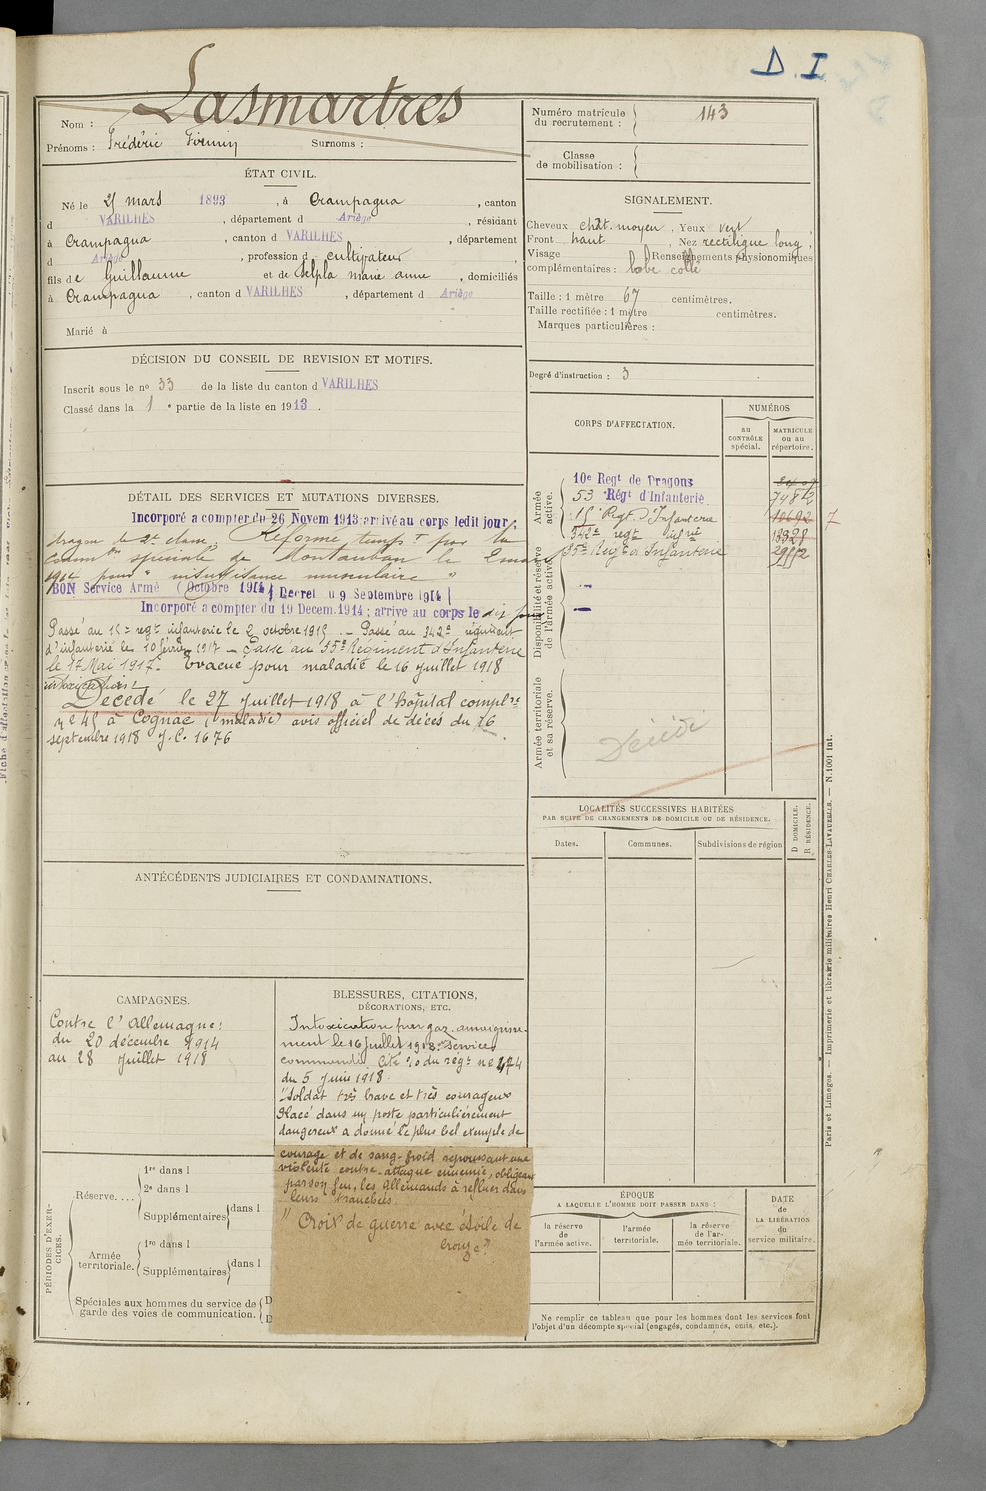 D. I
Lasmartres
Nom :
Prénoms : Frédéric Firmin Surnoms :
ÉTAT CIVIL.
Né le 21 mars 1893, à Crampagna, canton
d VARILHES, département d Ariège, résidant
à Crampagna, canton d VARILHES, département
d Ariège, profession d cultivateur,
fils de Guillaume et de Delpla marie anne, domiciliés
à Crampagna, canton d VARILHES, département d Ariège
Marié à
DÉCISION DU CONSEIL DE REVISION ET MOTIFS.
Inscrit sous le no 33 de la liste du canton d VARILHES
Classé dans la 1 e partie de la liste en 1913.
DÉTAIL DES SERVICES ET MUTATIONS DIVERSES.
Incorporé a compter du 26 Novem 1913 arrivé au corps ledit jour,
dragon de 2e classe. Réformé temp t par la
Comm on spéciale de Montauban le 2 mars
1914 pour " insuffisance musculaire "
BON Service Armé (Octobre 1914) Decret du 9 Septembre 1914
Incorporé a compter du 19 Decem. 1914; arrive au corps le dit jour
Passé au 15e regt infanterie le 2 octobre 1915. - Passé au 342e régiment
d'infanterie le 10 février 1917 - Passé au 55e Régiment d'Infanterie
le 17 Mai 1917. Evacué pour maladie le 16 juillet 1918
intoxication
Décédé le 27 juillet 1918 à l'hôpital complre
no 45 à Cognac (maladie) avis officiel de décès du 16
septembre 1918 J.C. 1676
ANTÉCÉDENTS JUDICIAIRES ET CONDAMNATIONS.
CAMPAGNES.
Contre l'Allemagne:
du 20 décembre 1914
au 28 juillet 1918
BLESSURES, CITATIONS,
DÉCORATIONS, ETC.
Intoxication par gaz. amaigrisse-
ment le 16 juillet 1918. Service
commandé. Cité %o du régt no 474
du 5 juin 1918
"Soldat très brave et très courageux
Placé dans un poste particulièrement
dangereux a donné le plus bel exemple de
courage et de sang-froid repoussant une
violente contre-attaque ennemie, obligeant
par son feu, les Allemands à refluer dans
leurs tranchées.
" Croix de guerre avec étoile de
bronze"
PÉRIODES D'EXERCICES.
Réserve....
1re dans l
2e dans l
Supplémentaires dans l
Armée territoriale.
1re dans l
Supplémentaires dans l
Spéciales aux hommes du service de
garde des voies de communication.
D
D
Numéro matricule
du recrutement : 143
Classe
de mobilisation :
SIGNALEMENT.
Cheveux chât. moyen, Yeux vert
Front haut, Nez rectiligne long;
Visage Renseignements physionomiques
complémentaires : lobe collé
Taille : 1 mètre 67 centimètres.
Taille rectifiée : 1 mètre centimètres.
Marques particulières :
Degré d'instruction : 3
CORPS D'AFFECTATION.
NUMÉROS
au CONTRÔLE spécial.
MATRICULE ou au répertoire.
Armée active.
10e Regt de Dragons
53 Régt d'Infanterie 7482
15e Regt d'Infanterie 10692 7
342e regt infie 13928
55e Régt d'Infanterie
Disponibilité et réserve de l'armée active.
Armée territoriale et sa réserve.
Décédé
LOCALITÉS SUCCESSIVES HABITÉES
PAR SUITE DE CHANGEMENTS DE DOMICILE OU DE RÉSIDENCE.
Dates. Communes. Subdivisions de région D DOMICILE. R RÉSIDENCE.
ÉPOQUE
A LAQUELLE L'HOMME DOIT PASSER DANS :
la réserve de l'armée active.
l'armée territoriale.
la réserve de l'armée territoriale.
DATE de LA LIBÉRATION du service militaire.
Ne remplir ce tableau que pour les hommes dont les services font
l'objet d'un décompte spécial (engagés, condamnés, omis, etc.).
Paris et Limoges. — Imprimerie et librairie militaires Henri CHARLES-LAVAUZELLE. — N. 1001 int.